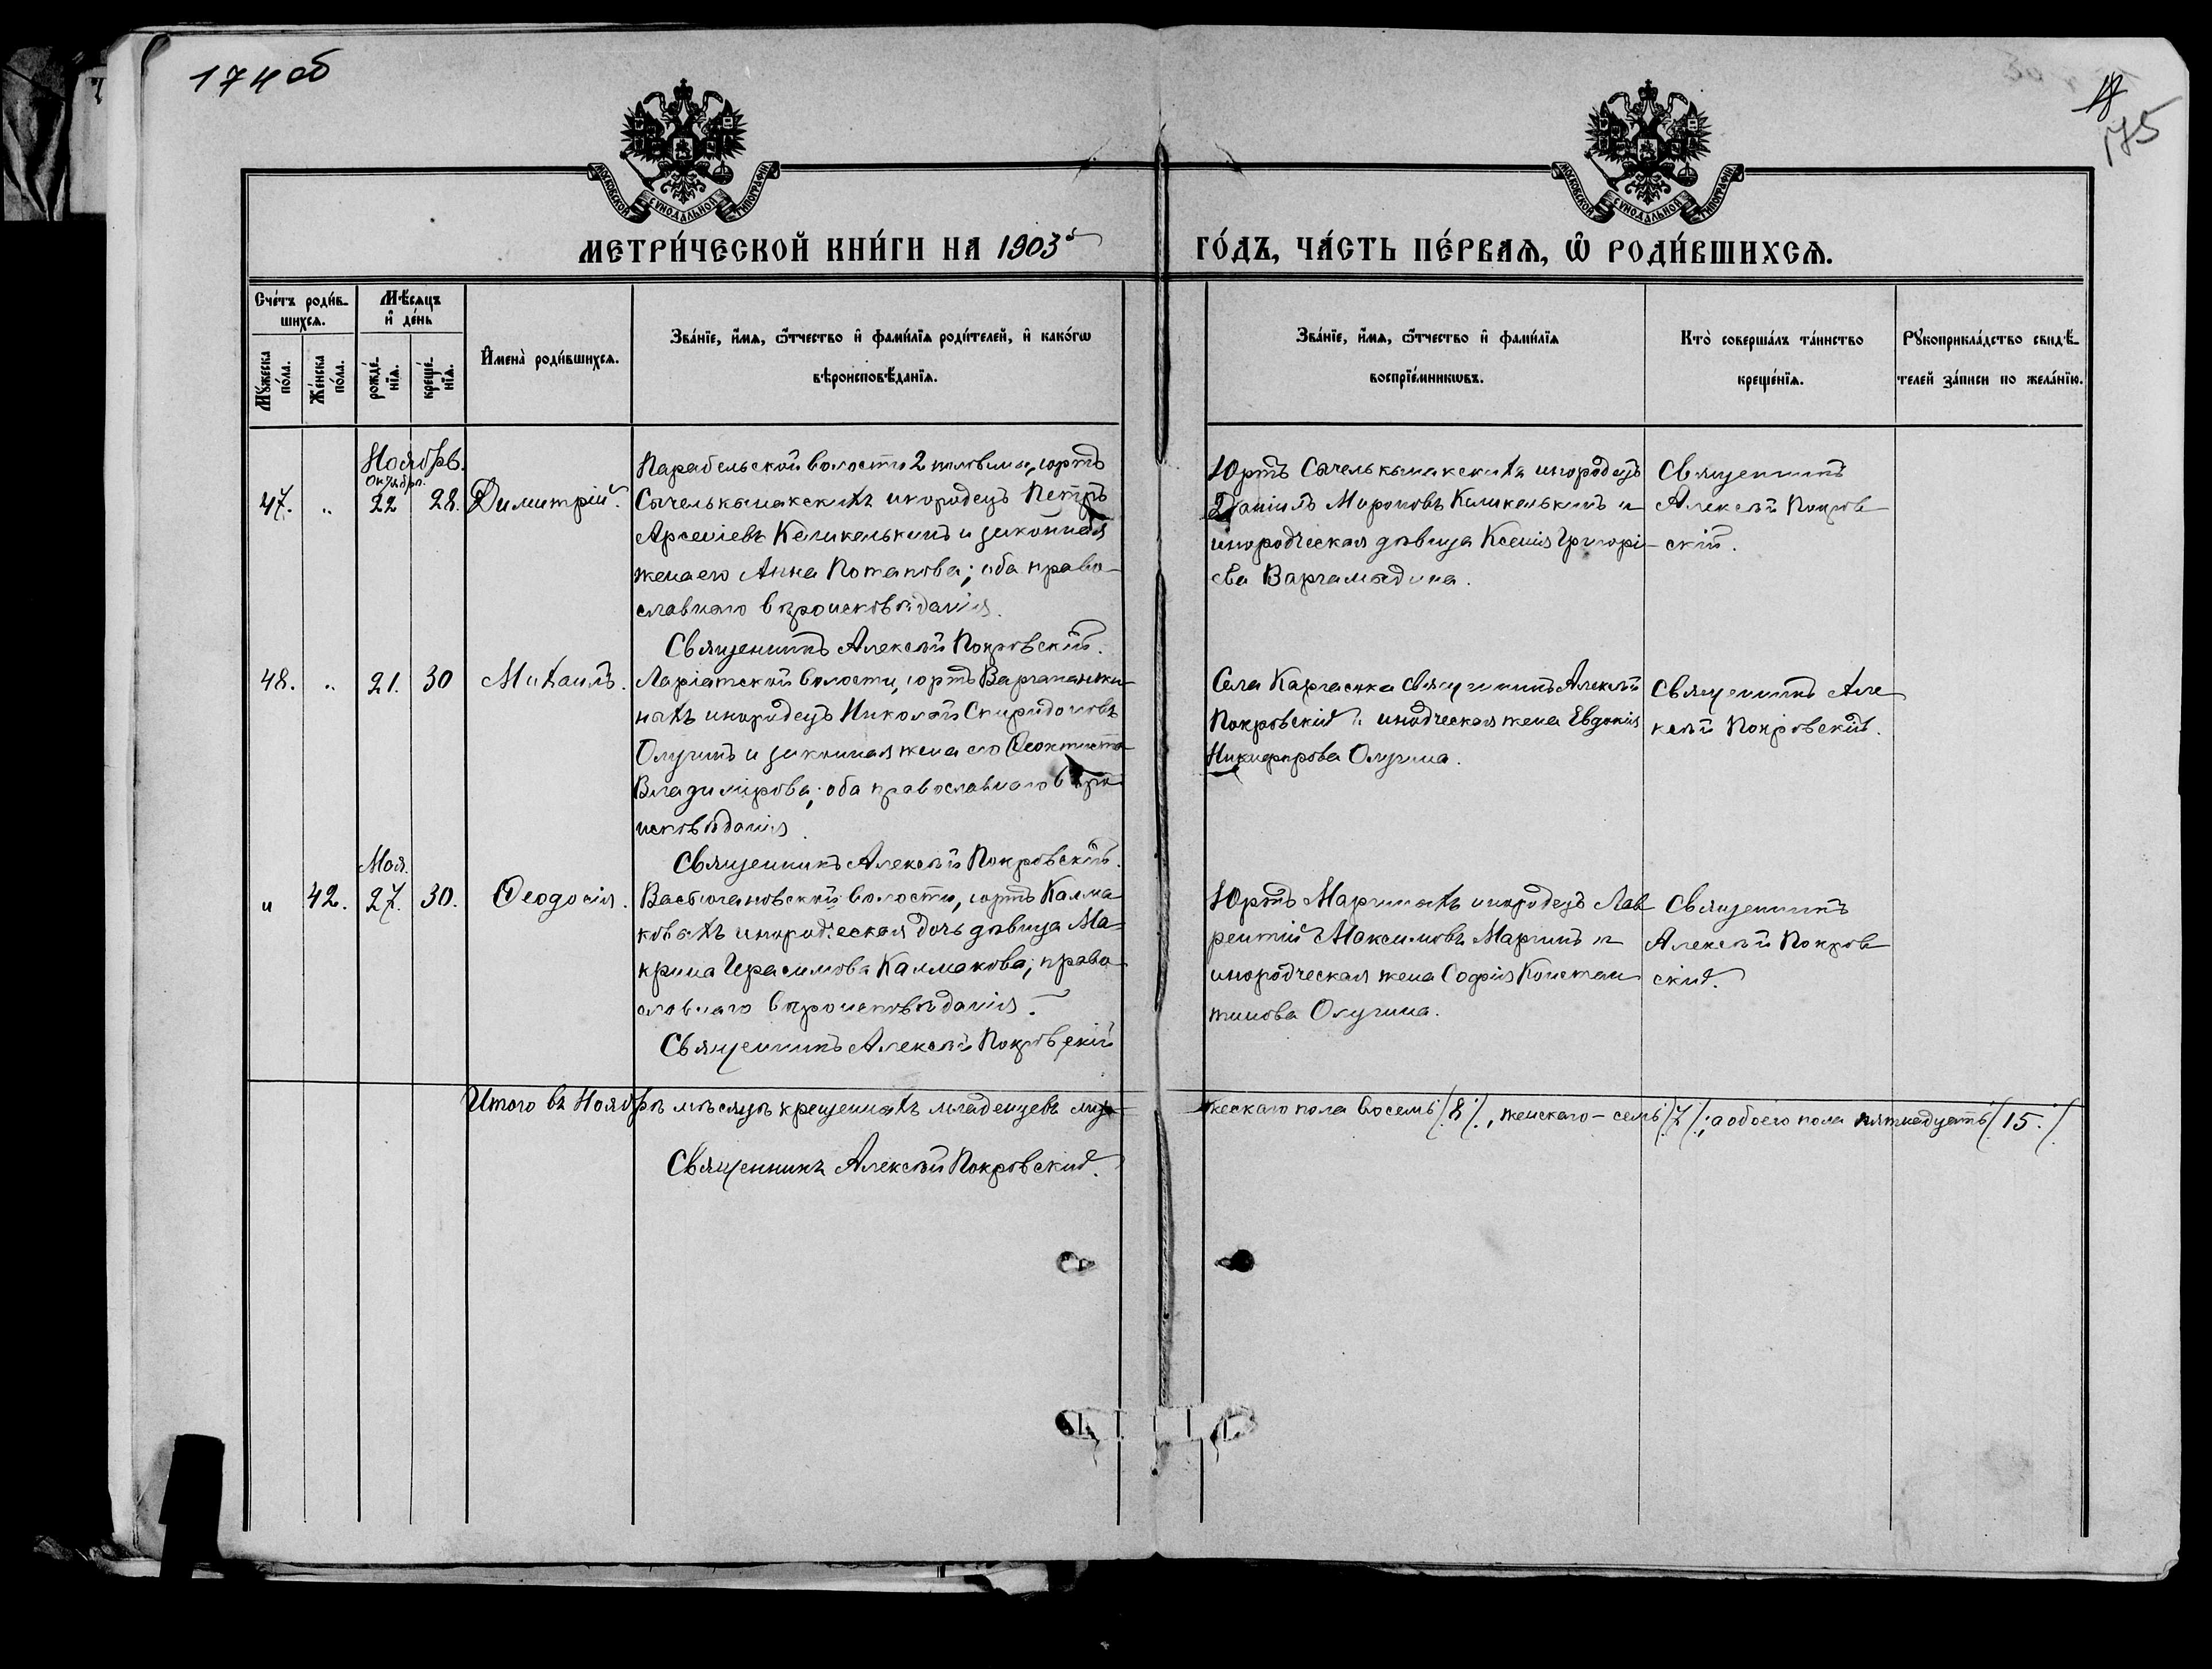 174 об
175
МОСКОВСКОЙ СѴНОДАЛЬНОЙ ТИПОГРАФІИ
МОСКОВСКОЙ СѴНОДАЛЬНОЙ ТИПОГРАФІИ
МЕТРИ́ЧЕСКОЙ КНИ́ГИ НА 1903й ГО́ДЪ, ЧА́СТЬ ПЕ́РВАѦ, Ѿ РОДИ́ВШИХСѦ.
Сче́тъ роди́в-
шихсѧ.
Мѣ́сѧцъ
и҆ де́нь
Мꙋ́жеска
по́ла.
Же́нска
по́ла.
рожде́-
нїѧ.
креще́-
нїѧ.
И҆мена̀ роди́вшихсѧ.
Зва́нїе, и҆́мѧ, ѻ҆́тчество и҆ фами́лїѧ роди́телей, и҆ како́гѡ
вѣроисповѣ́данїѧ.
Зва́нїе, и҆́мѧ, ѻ҆́тчество и҆ фами́лїѧ
воспрїе́мникѡвъ.
Кто̀ соверша́лъ та́инство
креще́нїѧ.
Рꙋкоприкла́дство свидѣ́-
телей за́писи по жела́нїю.
Ноябрь.
Октябр.
47. " 22 28. Димитрій.
Парабельской волости 2 половины, юртъ
Сачелькынакскихъ инородецъ Петръ
Арсеніевъ Каликелькинъ и законная
жена его Анна Потапова; оба право-
славнаго вѣроисповѣданія.
Священникъ Алексѣй Покровскій.
Юртъ Сачелькынакскихъ инородецъ
Даніилъ Мироновъ Каликелькинъ и
инородческая дѣвица Ксенія Григорі-
ева Варгамадина.
Священникъ
Алексѣй Покров-
скій.
48. " 21. 30 Михаилъ.
Ларіатской волости, юртъ Варгананжи-
ныхъ инородецъ Николай Спиридоновъ
Олугинъ и законная жена его Ѳеоктиста
Владимірова; оба православнаго вѣро-
исповѣданія.
Священникъ Алексѣй Покровскій.
Села Каргаска священникъ Алексѣй
Покровскій и инодческая жена Евдокія
Никифорова Олугина.
Священникъ Але-
ксѣй Покровскій.
Ноя.
" 42. 27. 30. Ѳеодосія.
Васюгановской волости, юртъ Калма-
ковыхъ инородческая дочь дѣвица Ма-
крина Герасимова Калмакова; право-
славнаго вѣроисповѣданія.
Священникъ Алексѣй Покровскій
Юртъ Маргиныхъ инородецъ Лав-
рентій Максимовъ Маргинъ и
инородческая жена Софія Констан-
тинова Олугина.
Священникъ
Алексѣй Покров-
скій.
Итого въ Ноябрѣ мѣсяцѣ крещенныхъ младенцевъ муже-
жескаго пола восемь /8/, женскаго - семь /7/; а обоего пола пятнадцать /15./
Священникъ Алексѣй Покровскій.